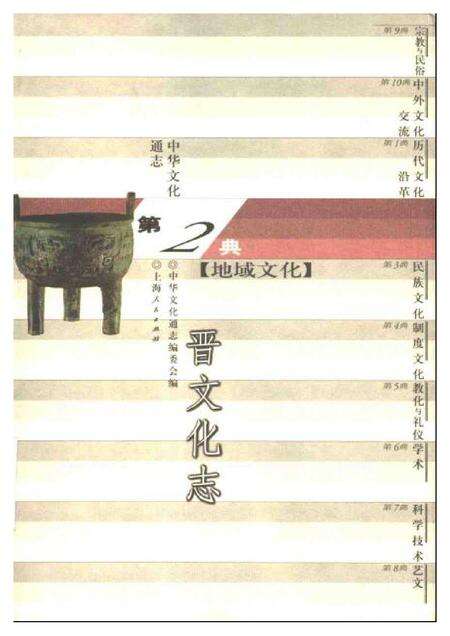 第9典
宗教与民俗
第10典
中外文化
交流
第1典
历代文化
沿革
中华文化
通志
第2典
【地域文化】
第3典
民族文化
第4典
制度文化
第5典
教化与礼仪
第6典
学术
第7典
科学技术
第8典
艺文
◎中华文化通志编委会编
◎上海人民出版社
晋文化志